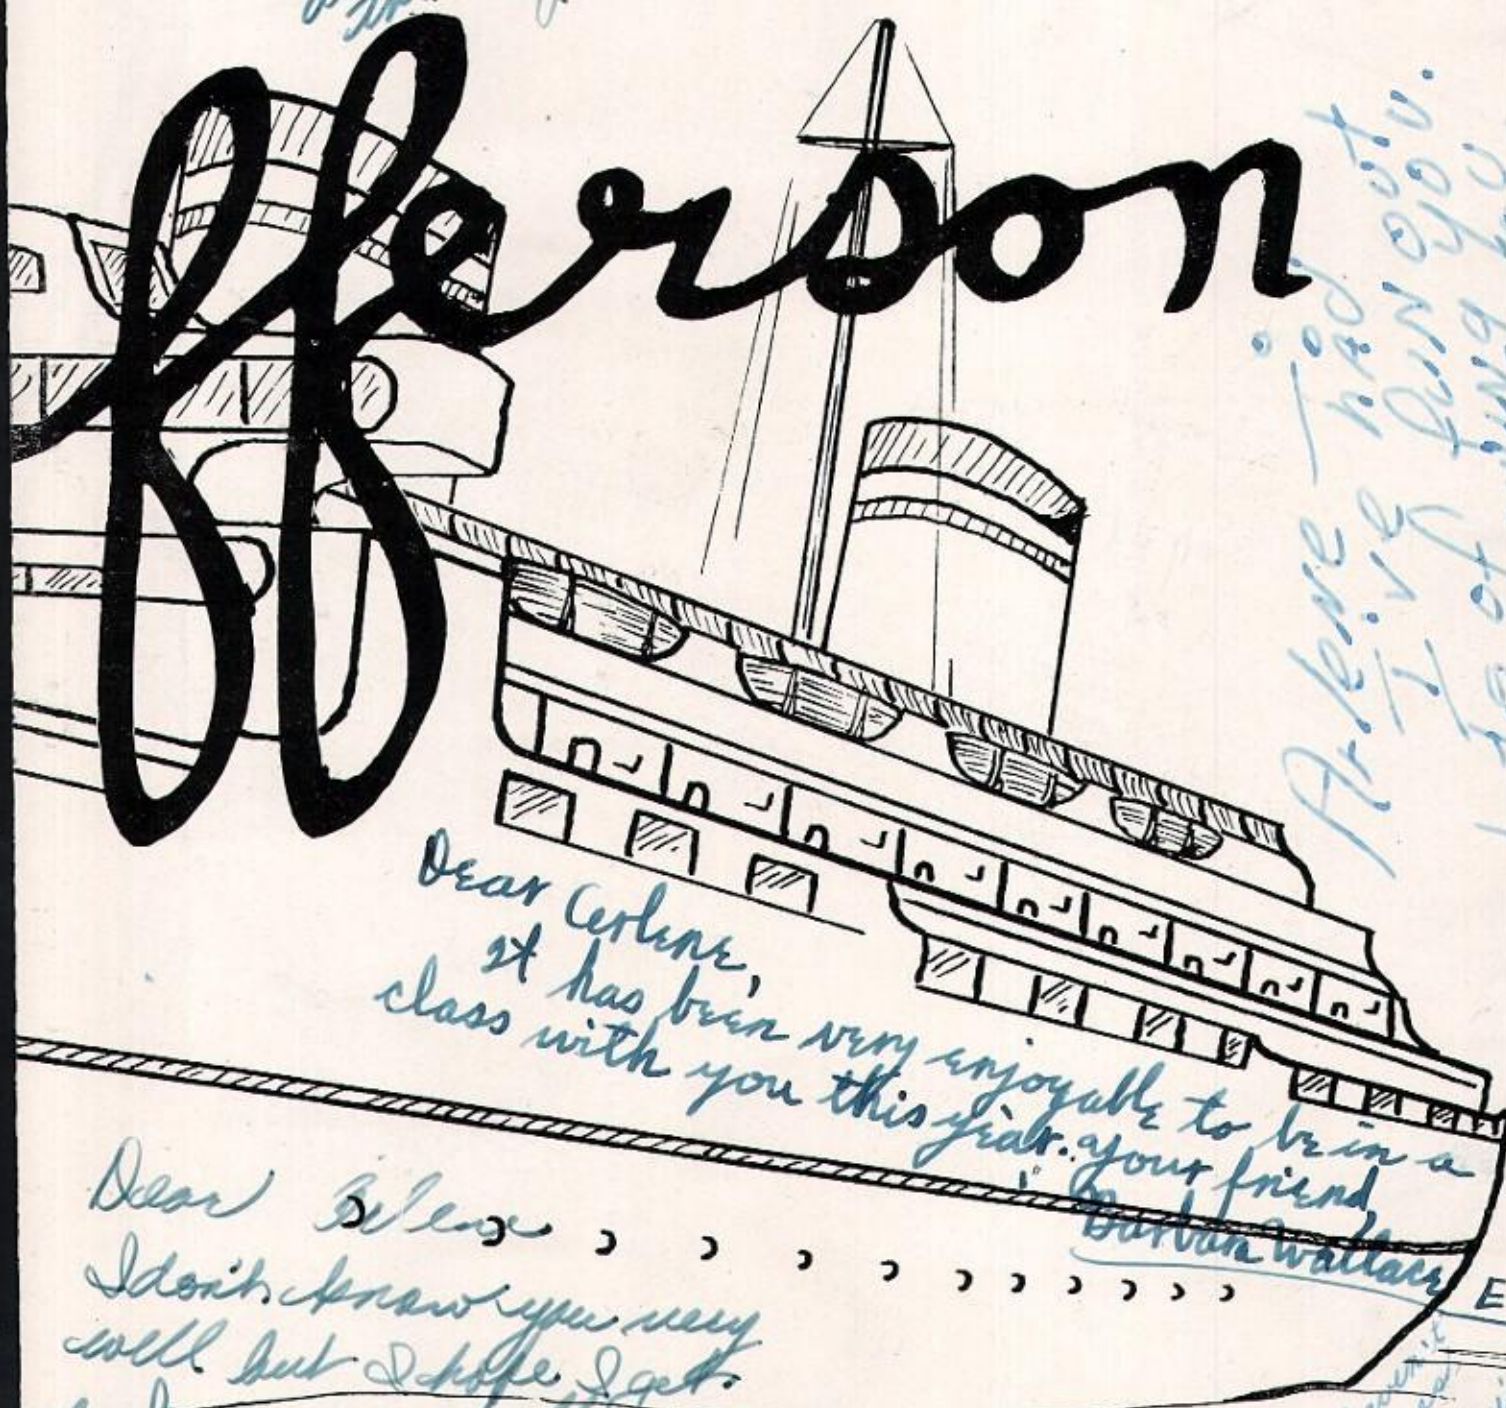 fferson
Arlene —
I've had
a lot of fun out
ing you.
Dear Cerlene,
It has been very enjoyable to be in a
class with you this year. your friend,
Barbara Wallace
Dear
I don't know you very
well but I hope I get
E